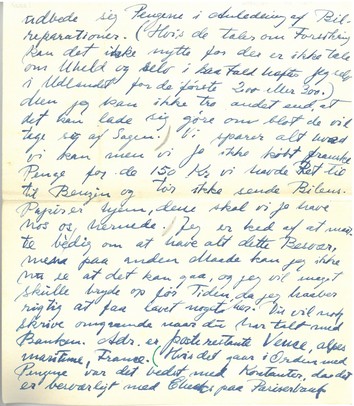 udbede sig Pengene i Anledning af Bil-
reparationer. (Hvis de taler om Forsikring
kan det ikke nytte for der er ikke tale
om Uheld og selv i saa Fald hæfter jeg selv
i Udlandet for de første 200 eller 300.)
Men jeg kan ikke tro andet end, at
det kan lade sig gøre om blot de vil
tage sig af Sagen. Vi sparer alt hvad
vi kan men vi fik ikke købt franske
Penge for de 150 Kr vi havde Ret til
til Benzin og tør ikke sende Bilens
Papirer hjem, dem skal vi jo have
hos os, hernede. Jeg er ked af at maa-
te bede dig om at have alt dette Besvær,
men paa anden Maade kan jeg ikke
se at det kan gaa, og jeg vil nøgd
skulle bryde op før Tiden, da jeg haaber
rigtig at faa lavet noget her. Du vil nok
skrive omgaaende naar du har talt med
Banken. Adr. er poste restante Vence, alpes
maritime, France. Hvis det gaar i Orden med
Pengene var det bedst med Kontanter, da det
er besværligt med Check paa Pariserbank